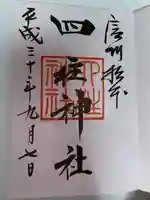 信州松本
四柱神社
平成三十年九月七日